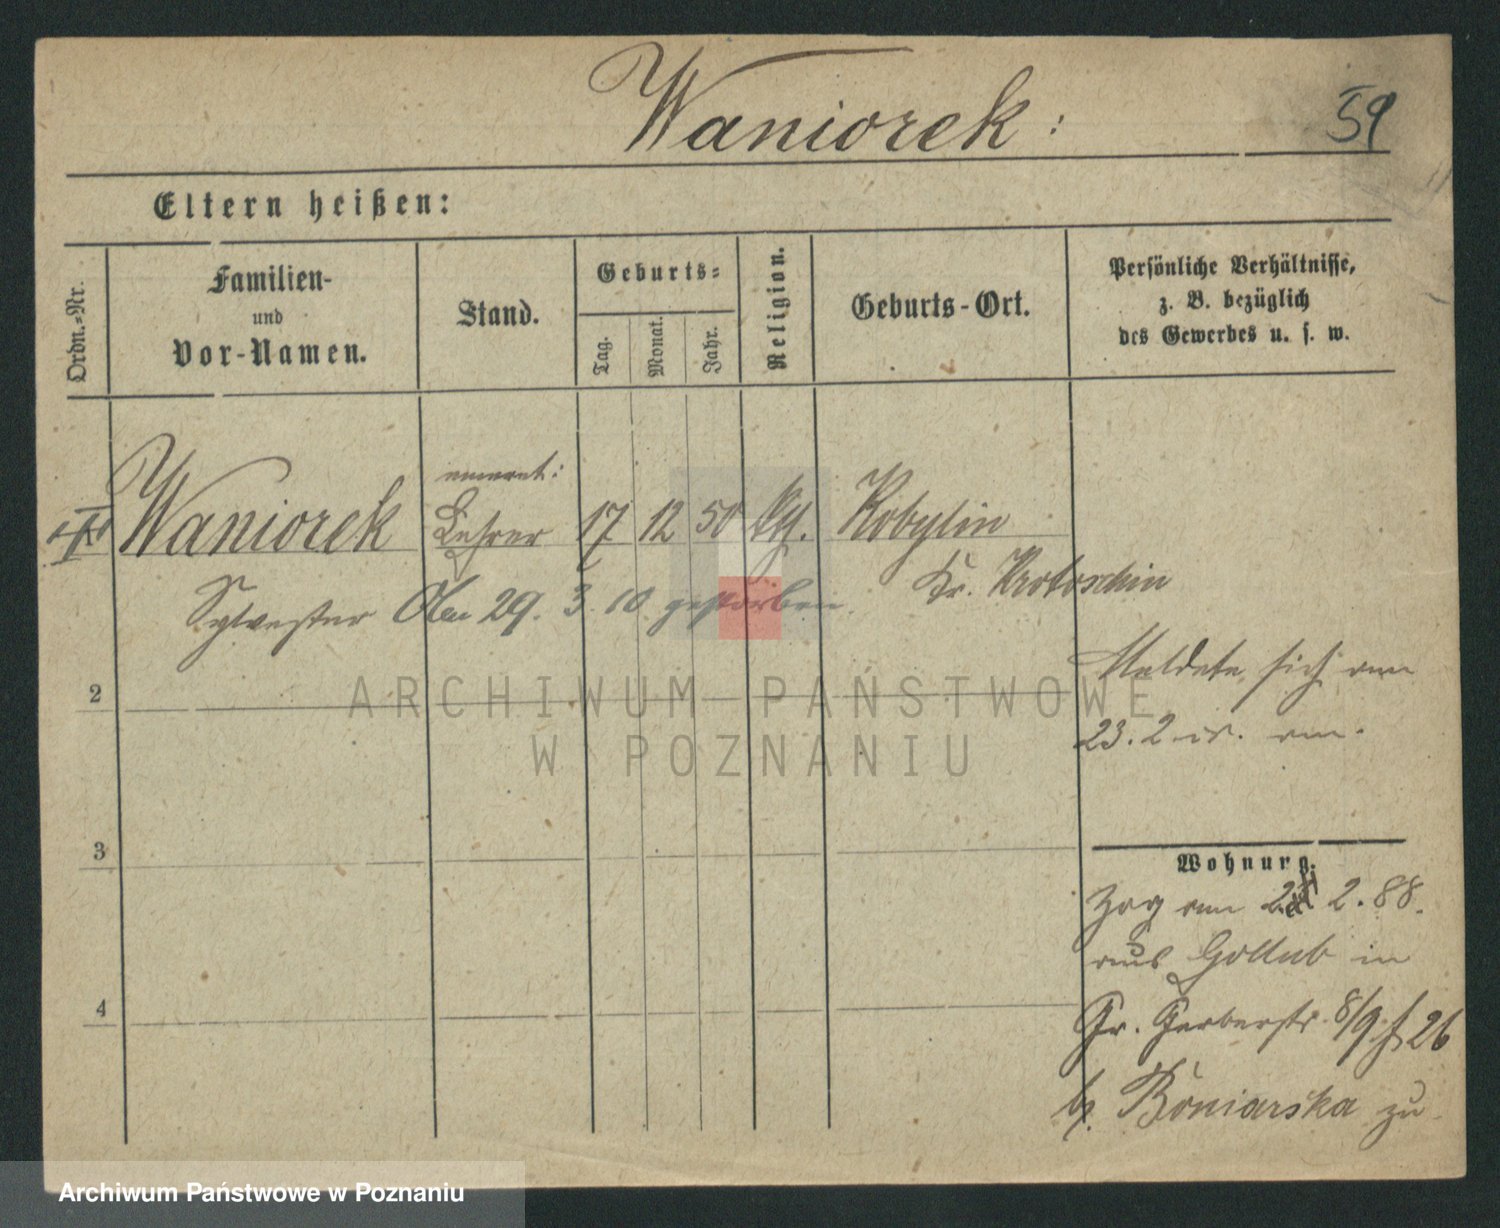 Waniorek:
59
Eltern heißen:
Ordn.-Nr.
Familien-
und
Vor-Namen.
Stand.
Geburts-
Tag.
Monat.
Jahr.
Religion.
Geburts-Ort.
Persönliche Verhältnisse,
z. B. bezüglich
des Gewerbes u. s. w.
emerit:
Waniorek Lehrer 17 12 50 Kobylin
Sylvester
Kr. Krotoschin
29. 3. 10 gestorben.
2
Meldete sich am
23. 2 an.
3
Wohnung.
Zog am 2. 88.
aus Gollub in
Gr. Gerberstr. 8/9 26
b. Boniarska zu
4
ARCHIWUM PAŃSTWOWE
W POZNANIU
Archiwum Państwowe w Poznaniu